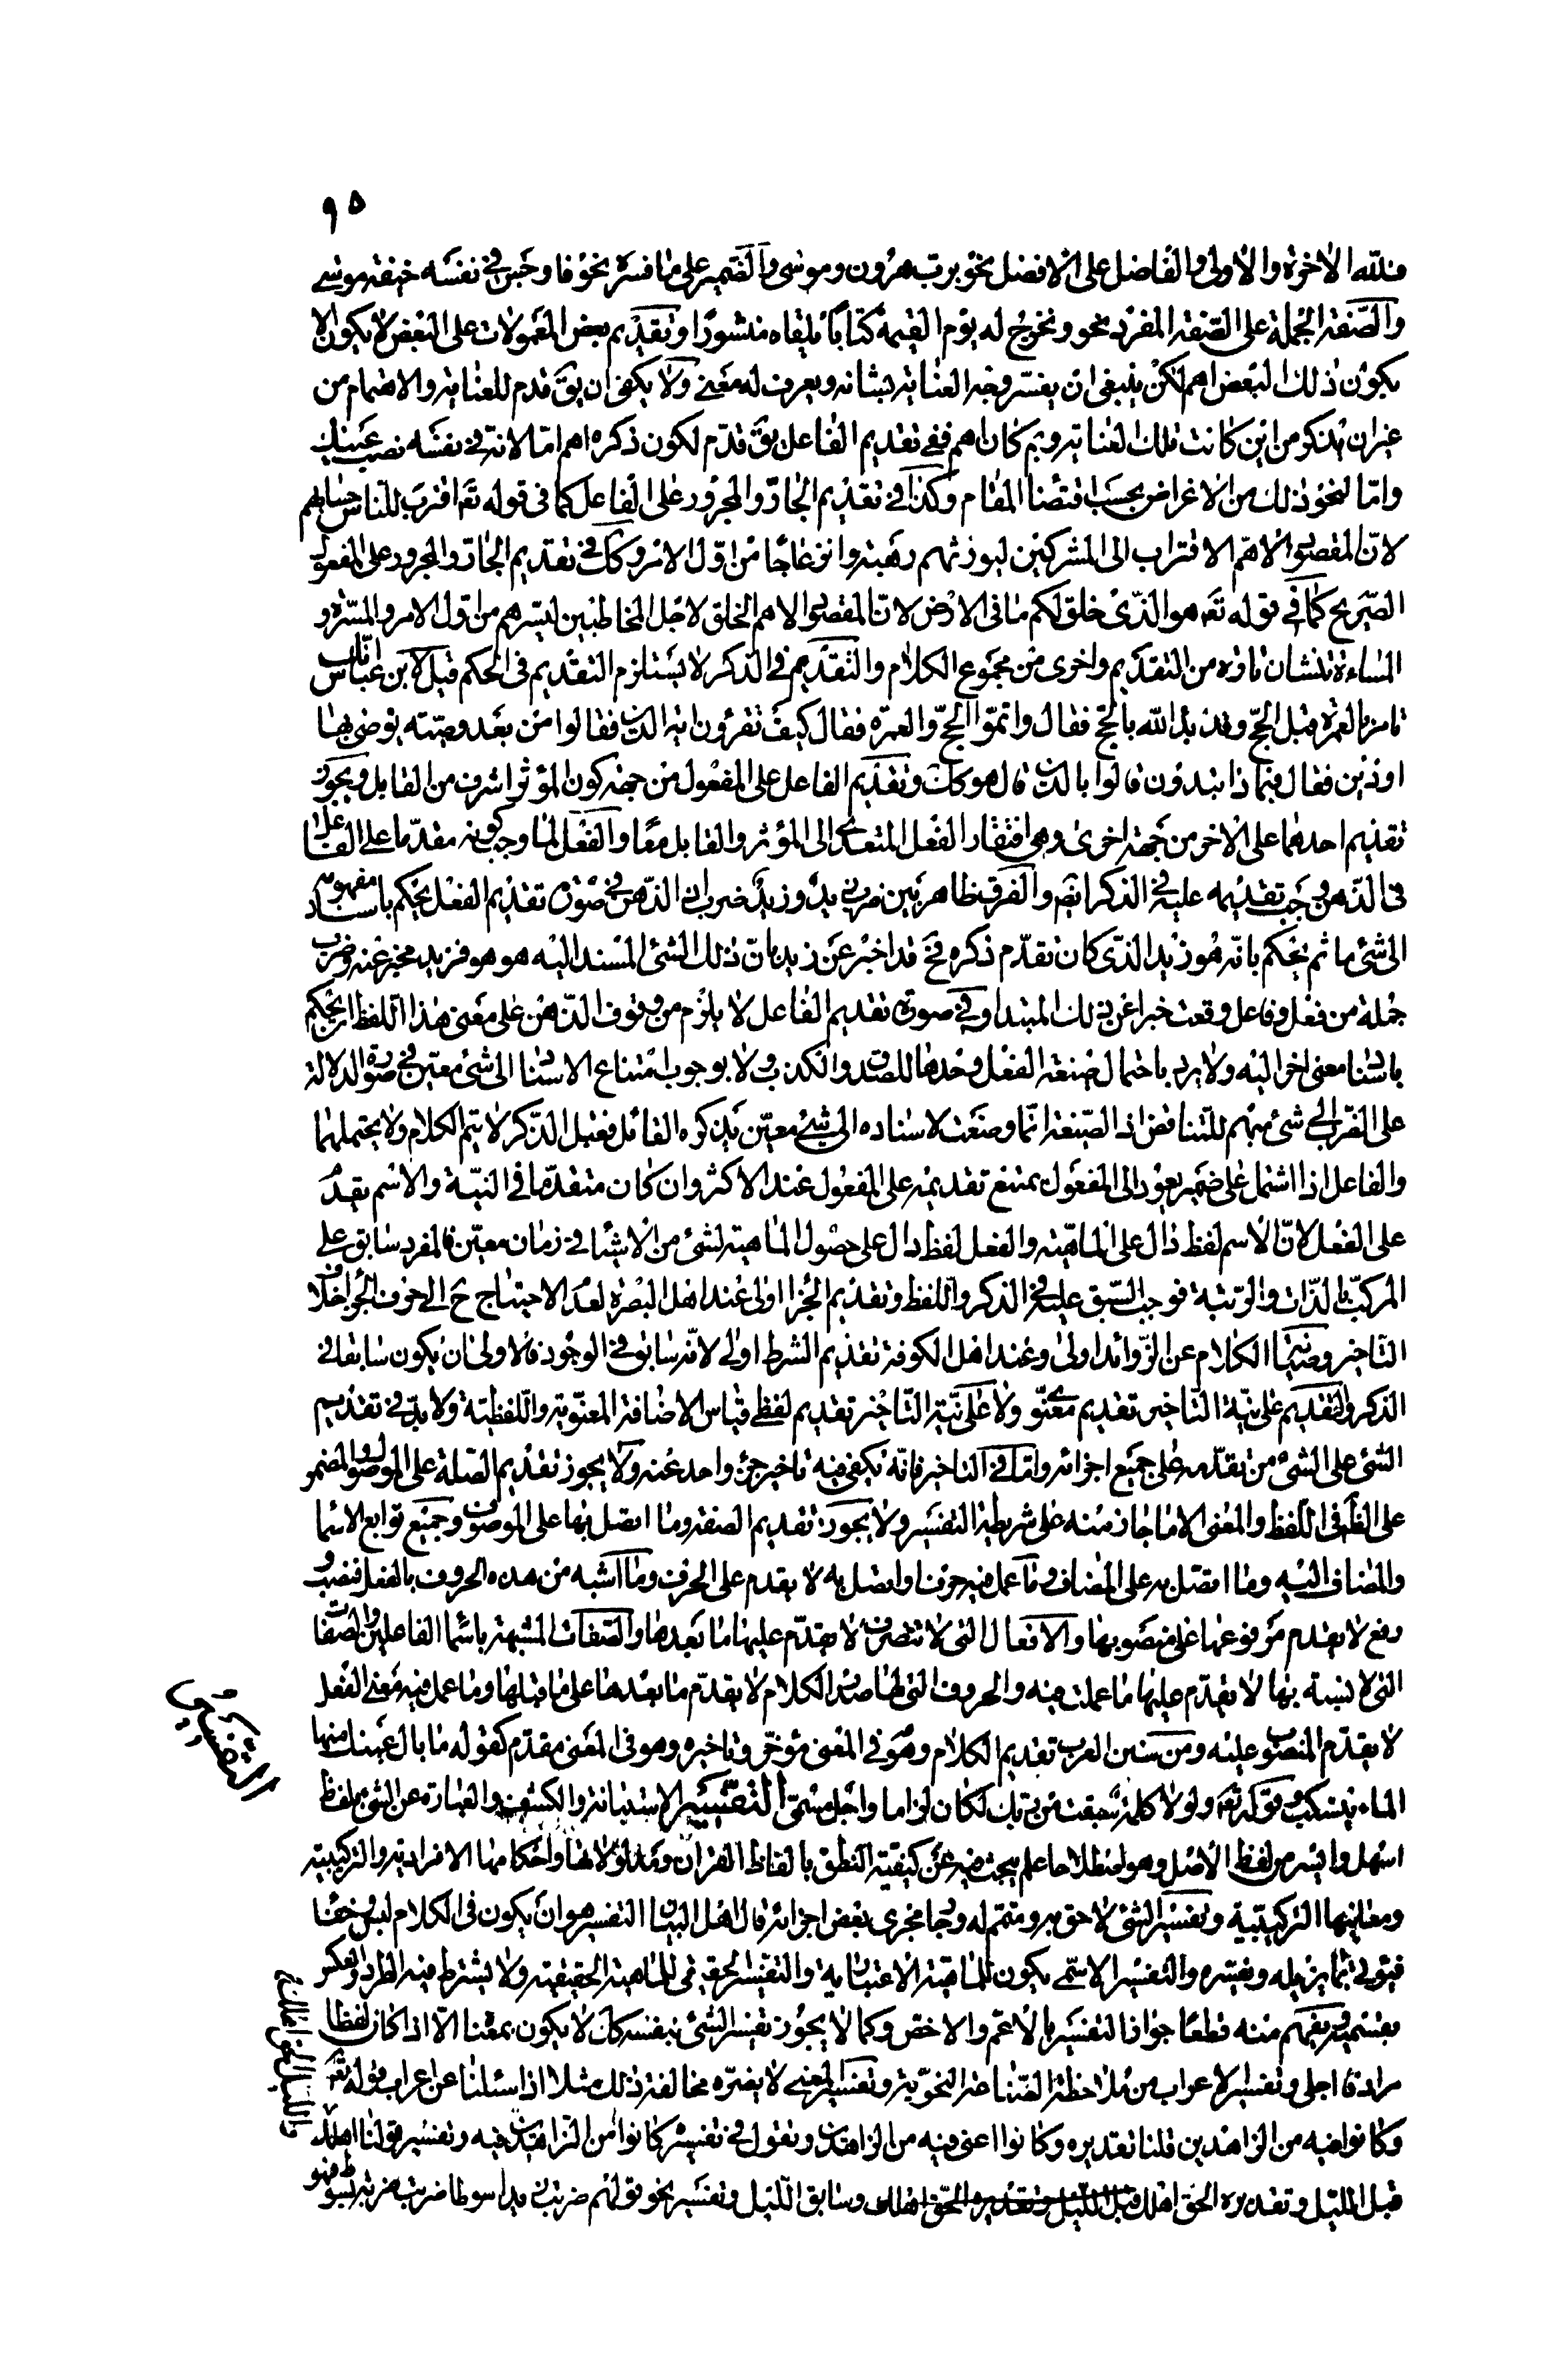 ٩٥
فلله الآخرة والاولى والفاضل على الافضل نحو برب هرون وموسى والضمير على ما فسره نحو فاوجس في نفسه خيفة موسى
والصفة الجملة على الصفة المفرد نحو ونخرج له يوم القيمة كتابا يلقاه منشورا وتقديم بعض المعمولات على البعض لا يكون الا
بكون ذلك البعض اهم لكن ينبغي ان يفسر وجه العناية بشانه ويعرف له معنى ولا يكفي ان يق قدم للعناية والاهتمام من
غير ان يذكر من اين كانت تلك العناية وبم كان اهم ففي تقديم الفاعل يق قدم لكون ذكره اهم اما لانه في نفسه نصب عينك
واما لنحو ذلك من الاغراض بحسب اقتضا المقام وكذا في تقديم الجار والمجرور على الفاعل كما في قوله تع اقترب للناس حسابهم
لان المقصود الاهم الاقتراب الى المشركين ليورثهم رهبة وانزعاجا من اول الامر وكك في تقديم الجار والمجرور على المفعول
الصريح كما في قوله تع هو الذي خلق لكم ما في الارض لان المقصود الاهم الخلق لاجل المخاطبين ليسرهم من اول الامر والمسرة و
المساءة تنشان تارة من التقديم واخرى من مجموع الكلام والتقديم في الذكر لا يستلزم التقديم في الحكم قيل لابن عباس انك
تامر بالعمرة قبل الحج وقد بدا الله بالحج فقال واتموا الحج والعمرة فقال كيف تقرؤن اية الدين فقالوا من بعد وصية يوصي بها
او دين فقال فبماذا تبدؤن قالوا بالدين قال هو كك وتقديم الفاعل على المفعول من جهة كون المؤثر اشرف من القابل ويجوز
تقديم احدهما على الاخر من جهة اخرى وهي افتقار الفعل المتعدى الى المؤثر والقابل معا والفعل لما وجب كونه مقدما على الفاعل
في الذهن وجب تقديمه عليه في الذكر ايضا والفرق ظاهر بين ضرب زيد وزيد ضرب اذ الذهن في صورة تقديم الفعل يحكم باسناد مفهومه
الى شئ ما ثم يحكم بانه هو زيد الذي كان تقدم ذكره فح قد اخبر عن زيد بان ذلك الشئ المسند اليه هو هو فزيد مخبر عنه وضرب
جملة من فعل وفاعل وقعت خبرا عن ذلك المبتدا وفي صورة تقديم الفاعل لا يلزم من وقوف الذهن على معنى هذا اللفظ ان يحكم
باسناد معنى اخر اليه ولا يرد باحتمال صيغة الفعل وحدها للصدق والكذب ولا بوجوب امتناع الاسناد الى شئ معين في صورة الدلالة
على الضرب الى شئ مبهم للتناقض اذ الصيغة انما وضعت لاسناده الى شئ معين يذكره القائل فقبل الذكر لا يتم الكلام ولا يحتملهما
والفاعل اذا اشتمل على ضمير يعود الى المفعول يمتنع تقديمه على المفعول عند الاكثر وان كان متقدما في النية والاسم يقدم
على الفعل لان الاسم لفظ دال على الماهية والفعل لفظ دال على حصول الماهية لشئ من الاشيا في زمان معين فالمفرد سابق على
المركب بالذات والرتبة فوجب السبق عليه في الذكر واللفظ وتقديم الجزا اولى عند اهل البصرة لعدم الاحتياج ح الى حرف الجزا بخلاف
التاخير وصيانة الكلام عن الزوائد اولى وعند اهل الكوفة تقديم الشرط اولى لانه سابق في الوجود فالاولى ان يكون سابقا في
الذكر والتقديم على نية التاخير تقديم معنوى ولا على نية التاخير تقديم لفظي قياس الاضافة المعنوية واللفظية ولا بد في تقديم
الشئ على الشئ من تقدمه على جميع اجزائه واما في التاخير فانه يكفي فيه تاخير جزء واحد عنه ولا يجوز تقديم الصلة على الموصول والمضمر
على الظاهر في اللفظ والمعنى الا ما جاز منه على شريطة التفسير ولا يجوز تقديم الصفة وما اتصل بها على الموصوف وجميع توابع الاسما
والمضاف اليه وما اتصل به على المضاف وما عمل فيه حرف او اتصل به لا يقدم على الحرف وما اشبه من هذه الحروف بالفعل فنصب و
رفع لا يقدم مرفوعها على منصوبها والافعال التي لا تتصرف لا يقدم عليها ما بعدها والصفات المشبهة باسما الفاعلين والصفات
التي لا نسبة بها لا يقدم عليها ما عملت فيه والحروف التي لها صدر الكلام لا يقدم ما بعدها على ما قبلها وما عمل فيه معنى الفعل
لا يقدم المنصوب عليه ومن سنن العرب تقديم الكلام وهو في المعنى مؤخر وتاخيره وهو في المعنى مقدم كقوله ما بال عينك منها
الماء ينسكب وقوله تع ولولا كلمة سبقت من ربك لكان لزاما واجل مسمى التفسير الاستبانة والكشف والعبارة عن الشئ بلفظ
اسهل وايسر من لفظ الاصل وهو اصطلاحا علم يبحث فيه عن كيفية النطق بالفاظ القران ومدلولاتها واحكامها الافرادية والتركيبية
ومعانيها التركيبية وتفسير الشئ لاحق به ومتمم له وجار مجرى بعض اجزائه قال اهل البيان التفسير هو ان يكون في الكلام لبس وخفا
فيؤتى بما يزيله ويفسره والتفسير الاسمى يكون للماهية الاعتبارية والتفسير الحقيقي للماهية الحقيقية ولا يشترط فيه الطرد والعكس
مراده اجلى وتفسير الاعراب من ملاحظة الصناعة النحوية وتفسير المعنى لا يضره مخالفة ذلك مثلا اذا سئلنا عن اعراب قوله تع
وكانوا فيه من الزاهدين قلنا تقديره وكانوا اعنى فيه من الزاهدين ونقول في تفسيره كانوا من الزاهدين فيه وتفسير قولنا اهلك
قبل الليل وتقديره الحق اهلك وسابق الليل وتفسير نحو قولهم ضربت زيدا سوطا ضربته ضربة بسوط فهو
التفسير